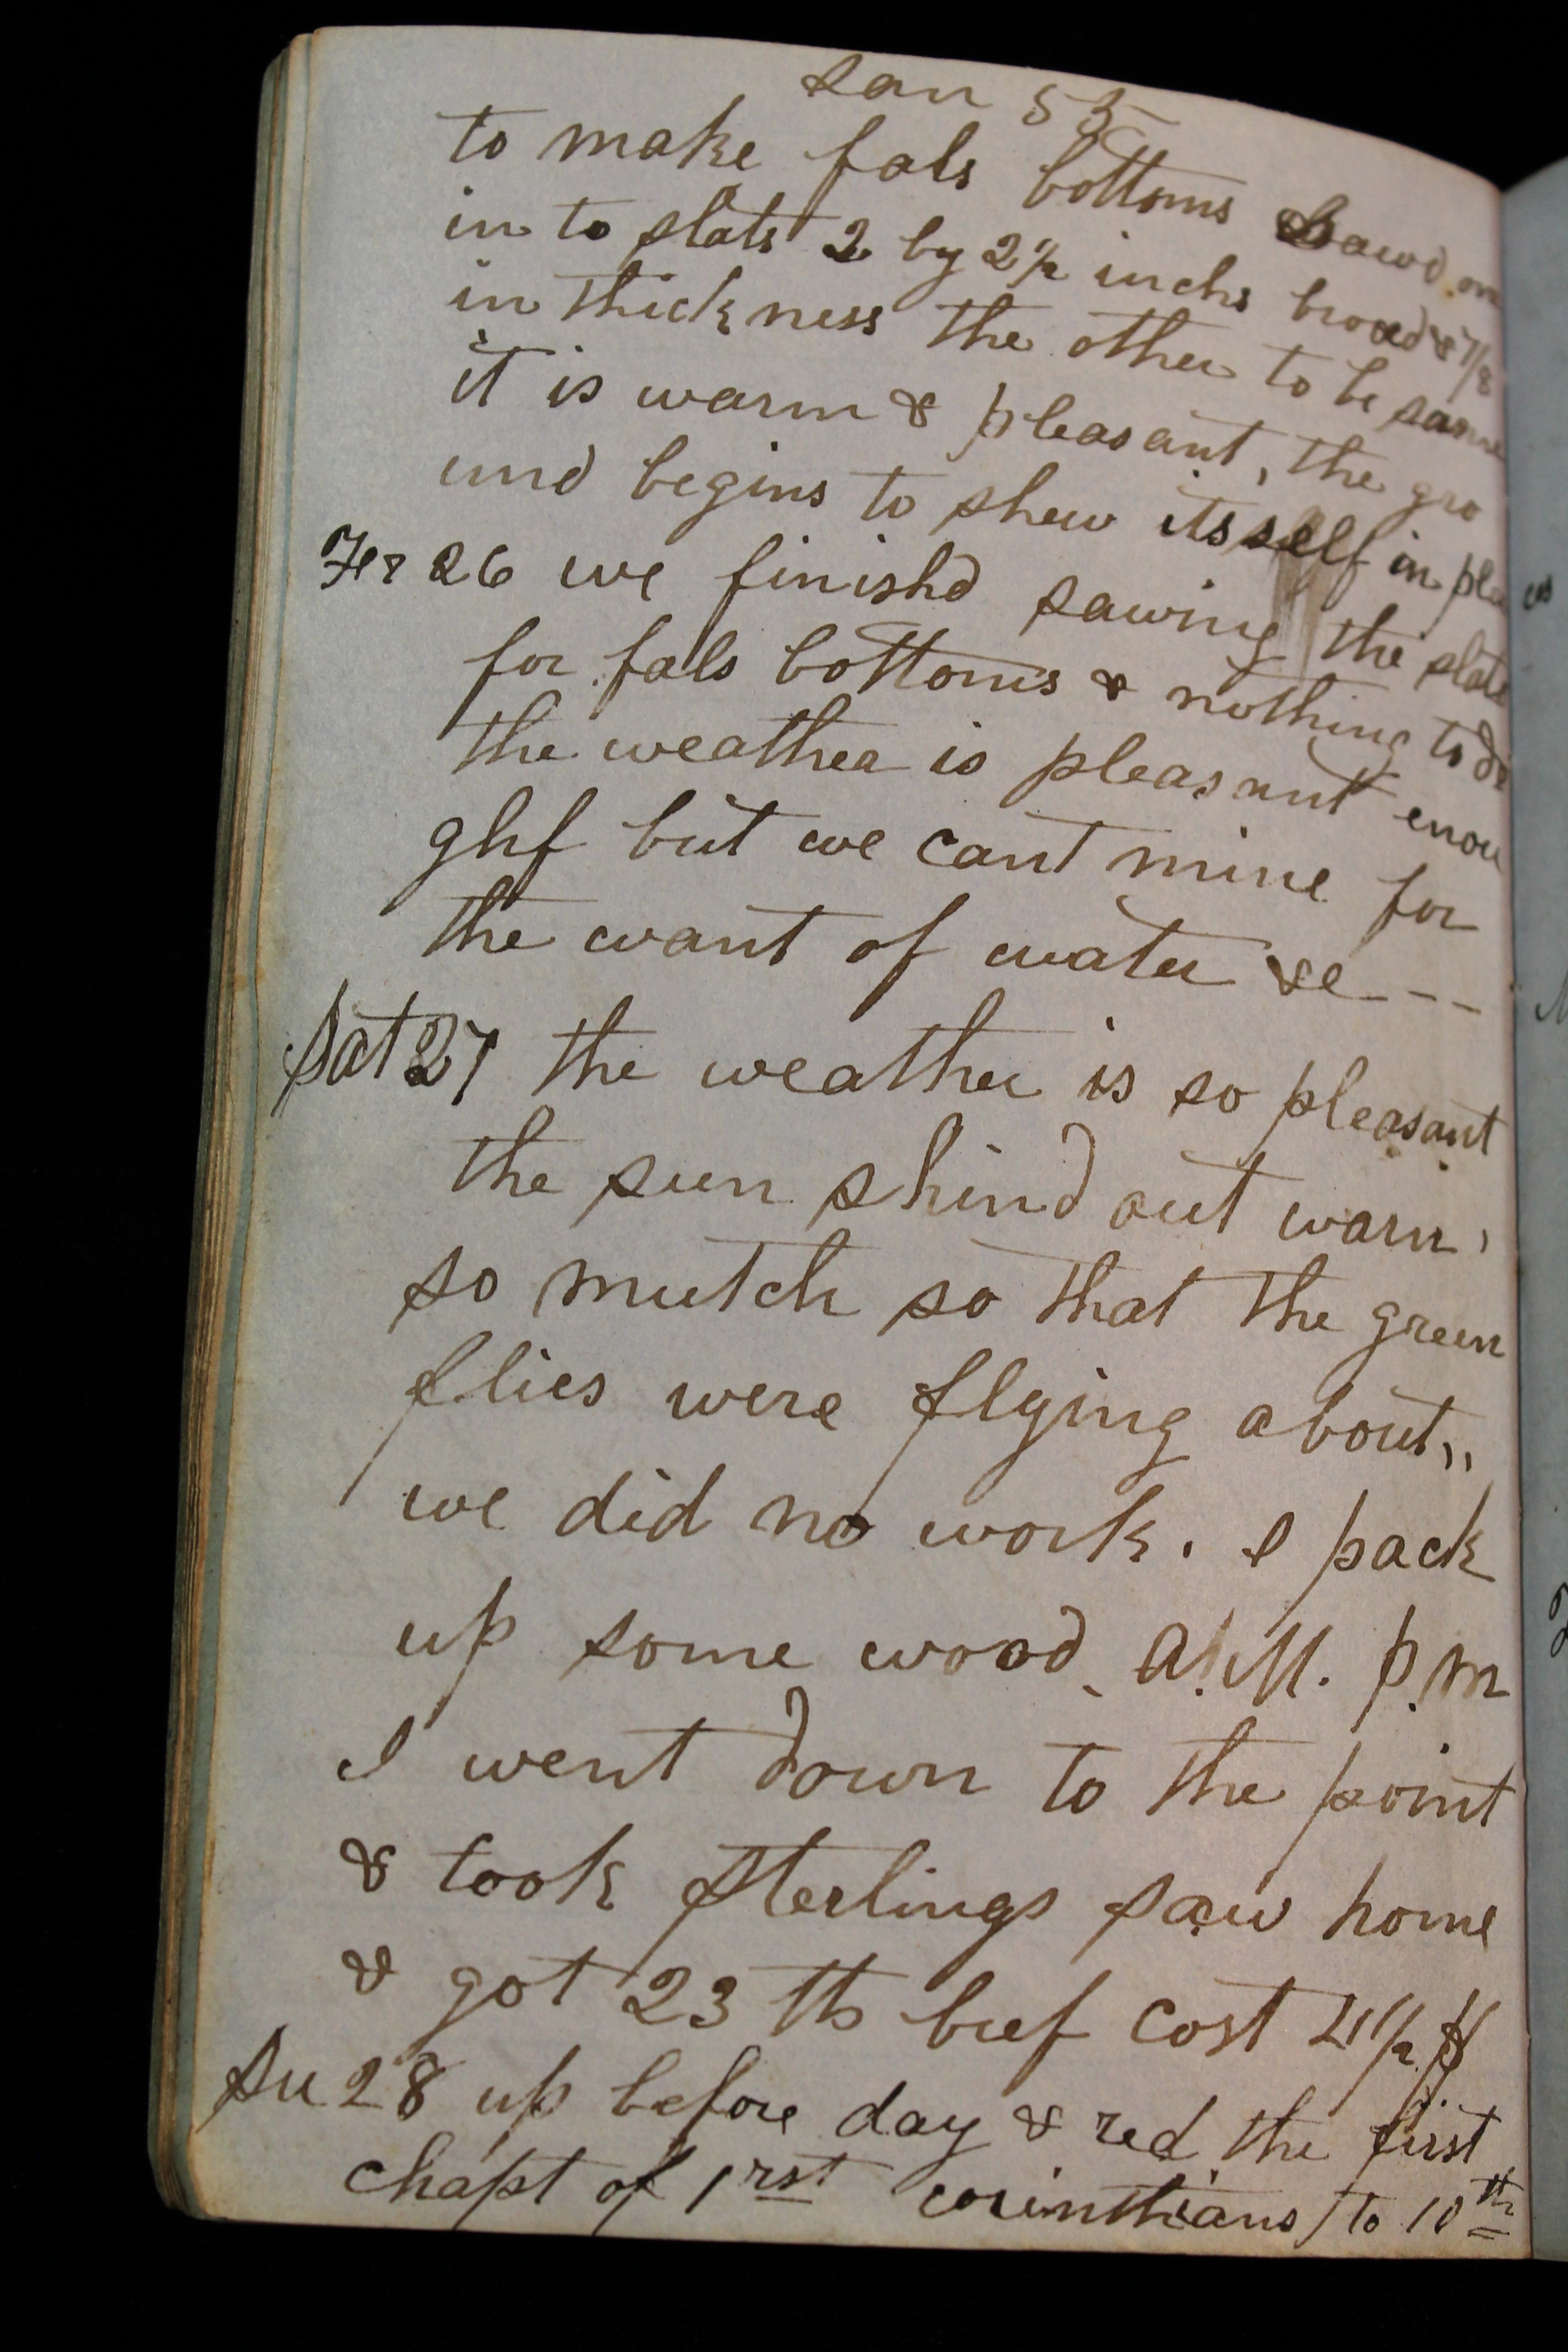 Jan 55
to make fals bottoms Sawd one
in to slats 2 by 2 1/2 inchs broad & 7/8
in thickness the other to be same
it is warm & pleasant, the gro
und begins to shew itsself in pla
Fer 26 we finishd sawing the slats
for fals bottoms & nothing to do
the weather is pleasant enou
ghf but we cant mine for
the want of water &c ---
Sat 27 the weather is so pleasant
the sun shind out warm,
so mutch so that the green
flies were flying about,,
we did no work. I pack
up some wood A.M. p.m
I went down to the point
& took Sterlings saw home
& got 23 lb beef cost 4 1/2 $
Su 28 up before day & red the first
chapt of 1rst corinthians to 10th